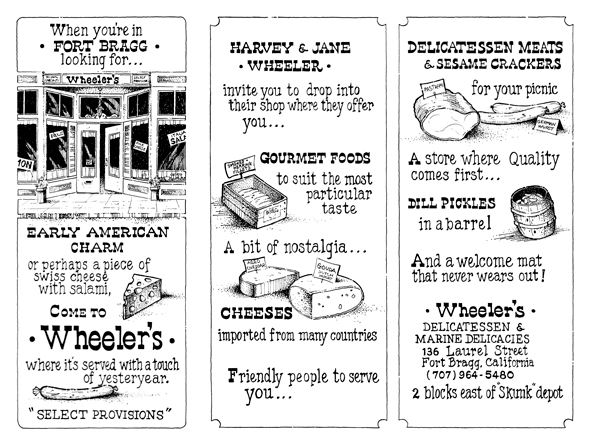 When you're in
• FORT BRAGG •
looking for...
Wheeler's
EARLY AMERICAN
CHARM
or perhaps a piece of
swiss cheese
with salami,
COME TO
• Wheeler's •
where it's served with a touch
of yesteryear.
"SELECT PROVISIONS"
HARVEY & JANE
• WHEELER •
invite you to drop into
their shop where they offer
you...
GOURMET FOODS
to suit the most
particular
taste
A bit of nostalgia...
GOUDA
CHEESES
imported from many countries
Friendly people to serve
you...
DELICATESSEN MEATS
& SESAME CRACKERS
for your picnic
PASTRAMI
A store where Quality
comes first...
DILL PICKLES
in a barrel
And a welcome mat
that never wears out!
• Wheeler's •
DELICATESSEN &
MARINE DELICACIES
136 Laurel Street
Fort Bragg, California
(707) 964-5480
2 blocks east of "Skunk" depot